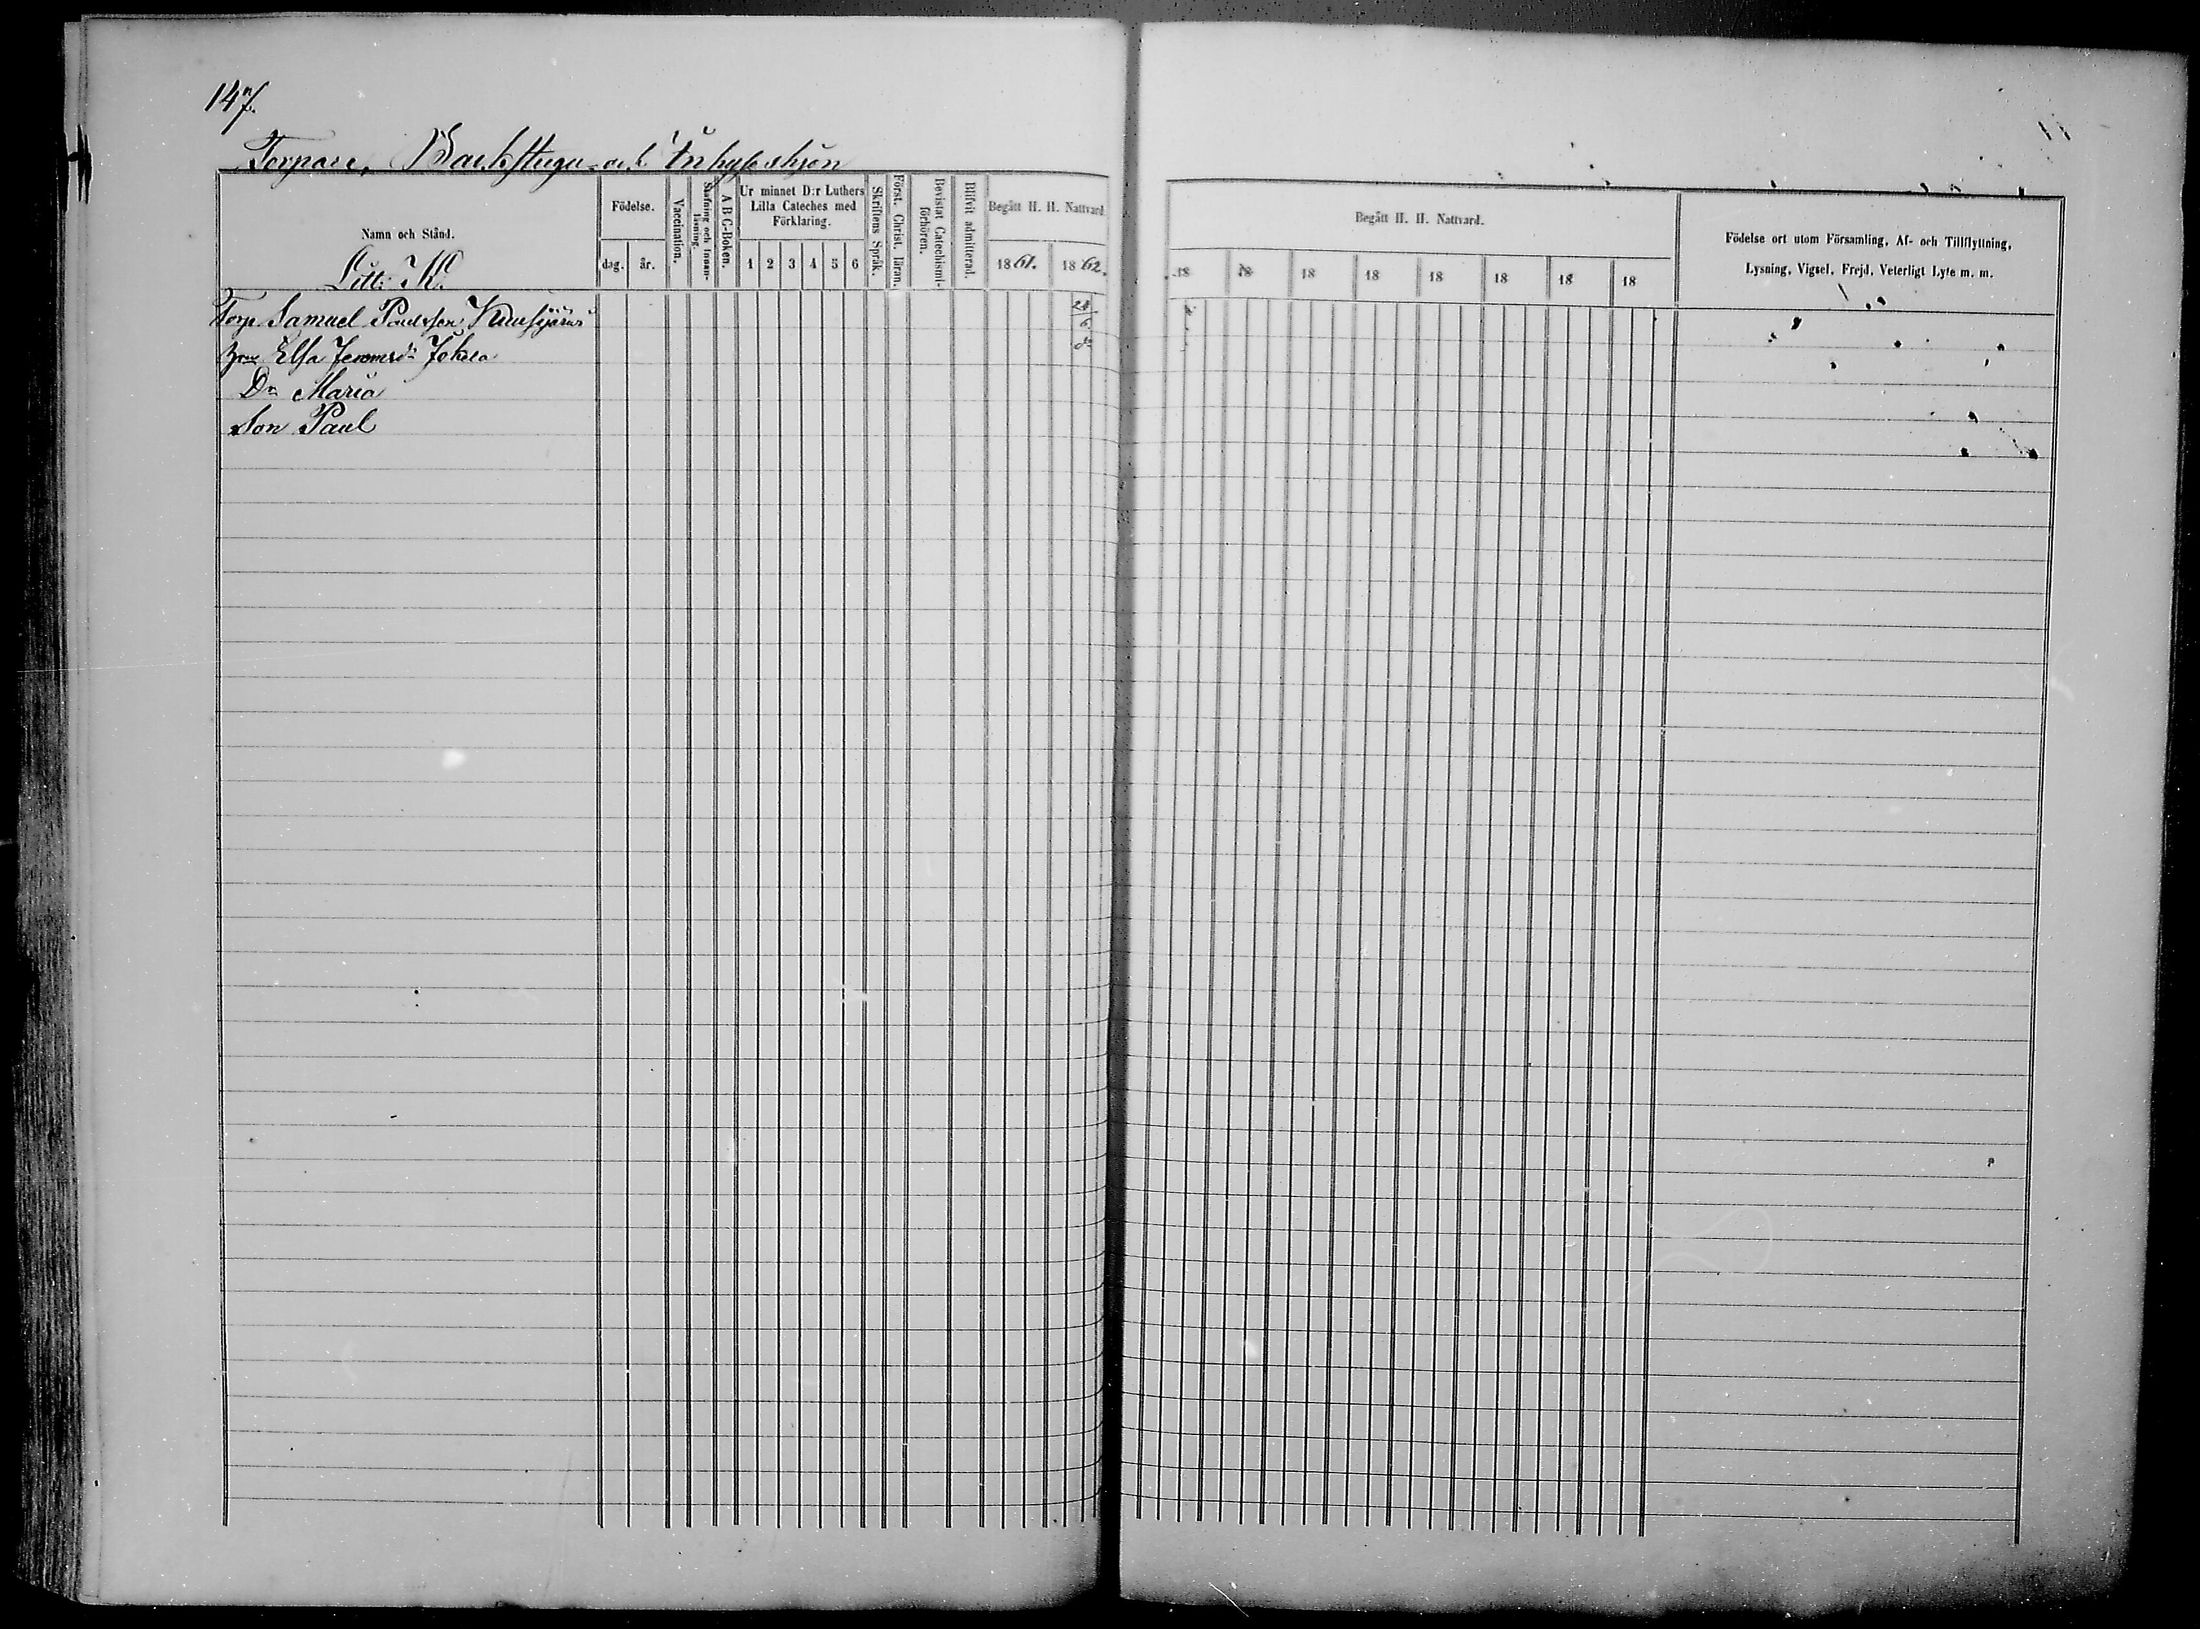 147.
Torpare, Backstugu- och Inhyseshjon
Namn och Stånd.
Litt: K.
Födelse.
dag. år.
Vaccination.
Stafning och Innanläsning.
A B C-Boken.
Ur minnet D:r Luthers
Lilla Cateches med
Förklaring.
1 2 3 4 5 6
Skriftens Språk.
Först. Christ. läran.
Bevistat Catechismi-
förhören.
Blifvit admitterad.
Begått H. H. Nattvard.
1861. 1862.
Torp. Samuel Paulsson 24/6
Elsa Jokela do
Dr Maria
Son Paul
Begått H. H. Nattvard.
18 18 18 18 18 18 18 18
Födelse ort utom Församling, Af- och Tillflyttning,
Lysning, Vigsel, Frejd, Veterligt Lyte m. m.